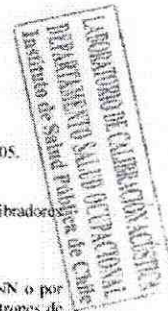 LABORATORIO DE CALIBRACIÓN ACÚSTICA
DEPARTAMENTO SALUD OCUPACIONAL
Instituto de Salud Pública de Chile
05.
ibradores
NN o por
trones de